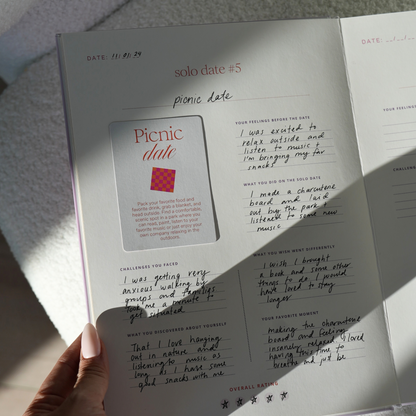 DATE: 11 / 01 / 24
solo date #5
picnic date
Picnic
date
Pack your favorite food and
favorite drink, grab a blanket, and
head outside. Find a comfortable,
scenic spot in a park where you
can read, paint, listen to your
favorite music or just enjoy your
own company relaxing in the
outdoors.
YOUR FEELINGS BEFORE THE DATE
I was excited to
relax outside and
listen to music &
I'm bringing my fav
snacks
WHAT YOU DID ON THE SOLO DATE
I made a charcuterie
board and laid
out by the park &
listened to some new
music
CHALLENGES YOU FACED
I was getting very
anxious walking by
groups and families
took me a minute to
get situated
WHAT YOU WISH WENT DIFFERENTLY
I wish I brought
a book and some other
things to do I would
have loved to stay
longer
WHAT YOU DISCOVERED ABOUT YOURSELF
That I love hanging
out in nature and
listening to music as
long as I have some
good snacks with me
YOUR FAVORITE MOMENT
making the charcuterie
board and feeling
insanely relaxed I loved
having this time to
breathe and just be
OVERALL RATING
DATE: